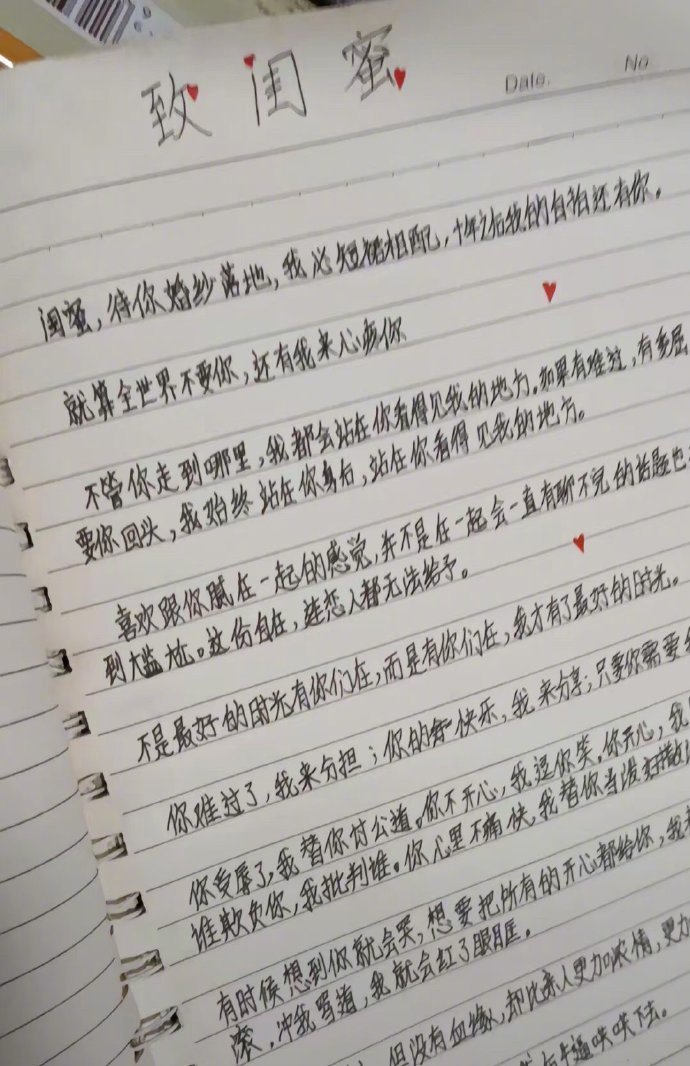 致闺蜜
Date.
No
闺蜜，待你婚纱落地，我必短裙相配，十年之后我的自拍还有你。
就算全世界不要你，还有我来心疼你
不管你走到哪里，我都会站在你看得见我的地方。如果有难过，有委屈
要你回头，我始终站在你身后，站在你看得见我的地方。
喜欢跟你腻在一起的感觉，并不是在一起会一直有聊不完的话题也
到尴尬。这份自在，连恋人都无法给予。
不是最好的时光有你们在，而是有你们在，我才有了最好的时光。
你难过了，我来分担；你的快乐，我来分享，只要你需要
你受辱了，我替你讨公道。你不开心，我逗你笑。你开心，我
谁欺负你，我批判谁。你心里不痛快，我替你当泼妇撒
有时候想到你就会哭，想要把所有的开心都给你，我
滚，冲我骂道，我就会红了眼眶。
但没有血缘，却比亲人更加浓情，更加
哄哄下去。